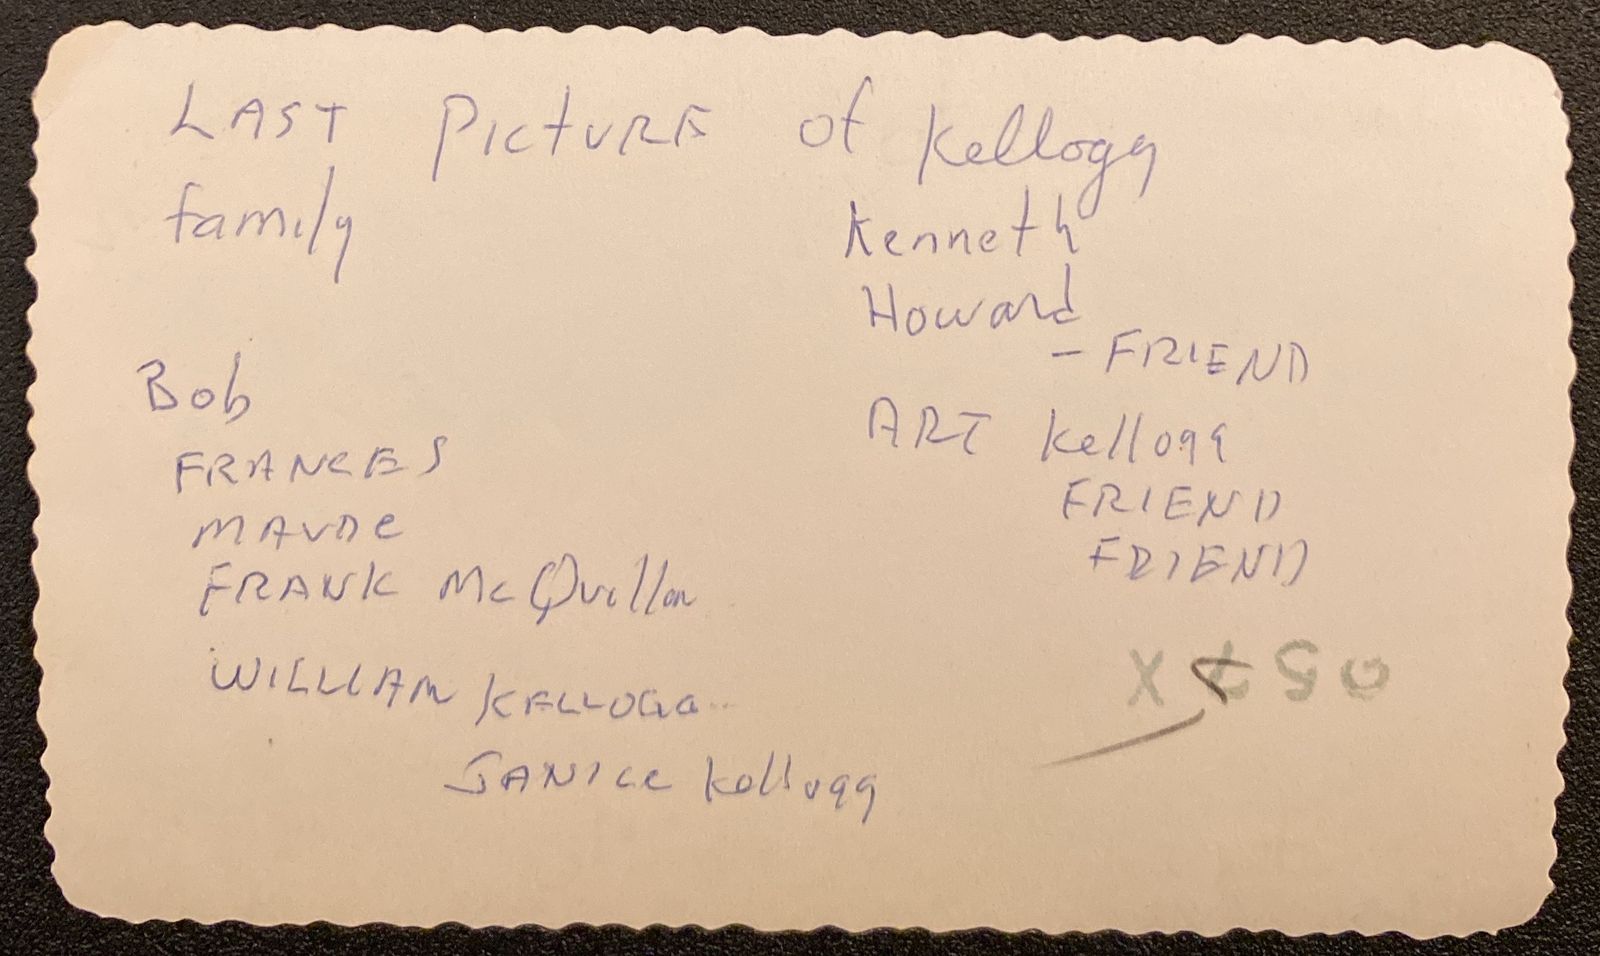 LAST PICTURE of Kellogg
family
Kenneth
Howard
- FRIEND
ART Kellogg
FRIEND
FRIEND
Bob
FRANCES
MAUDe
FRANK McQuillan
WILLIAM KELLOGG
JANICE Kellogg